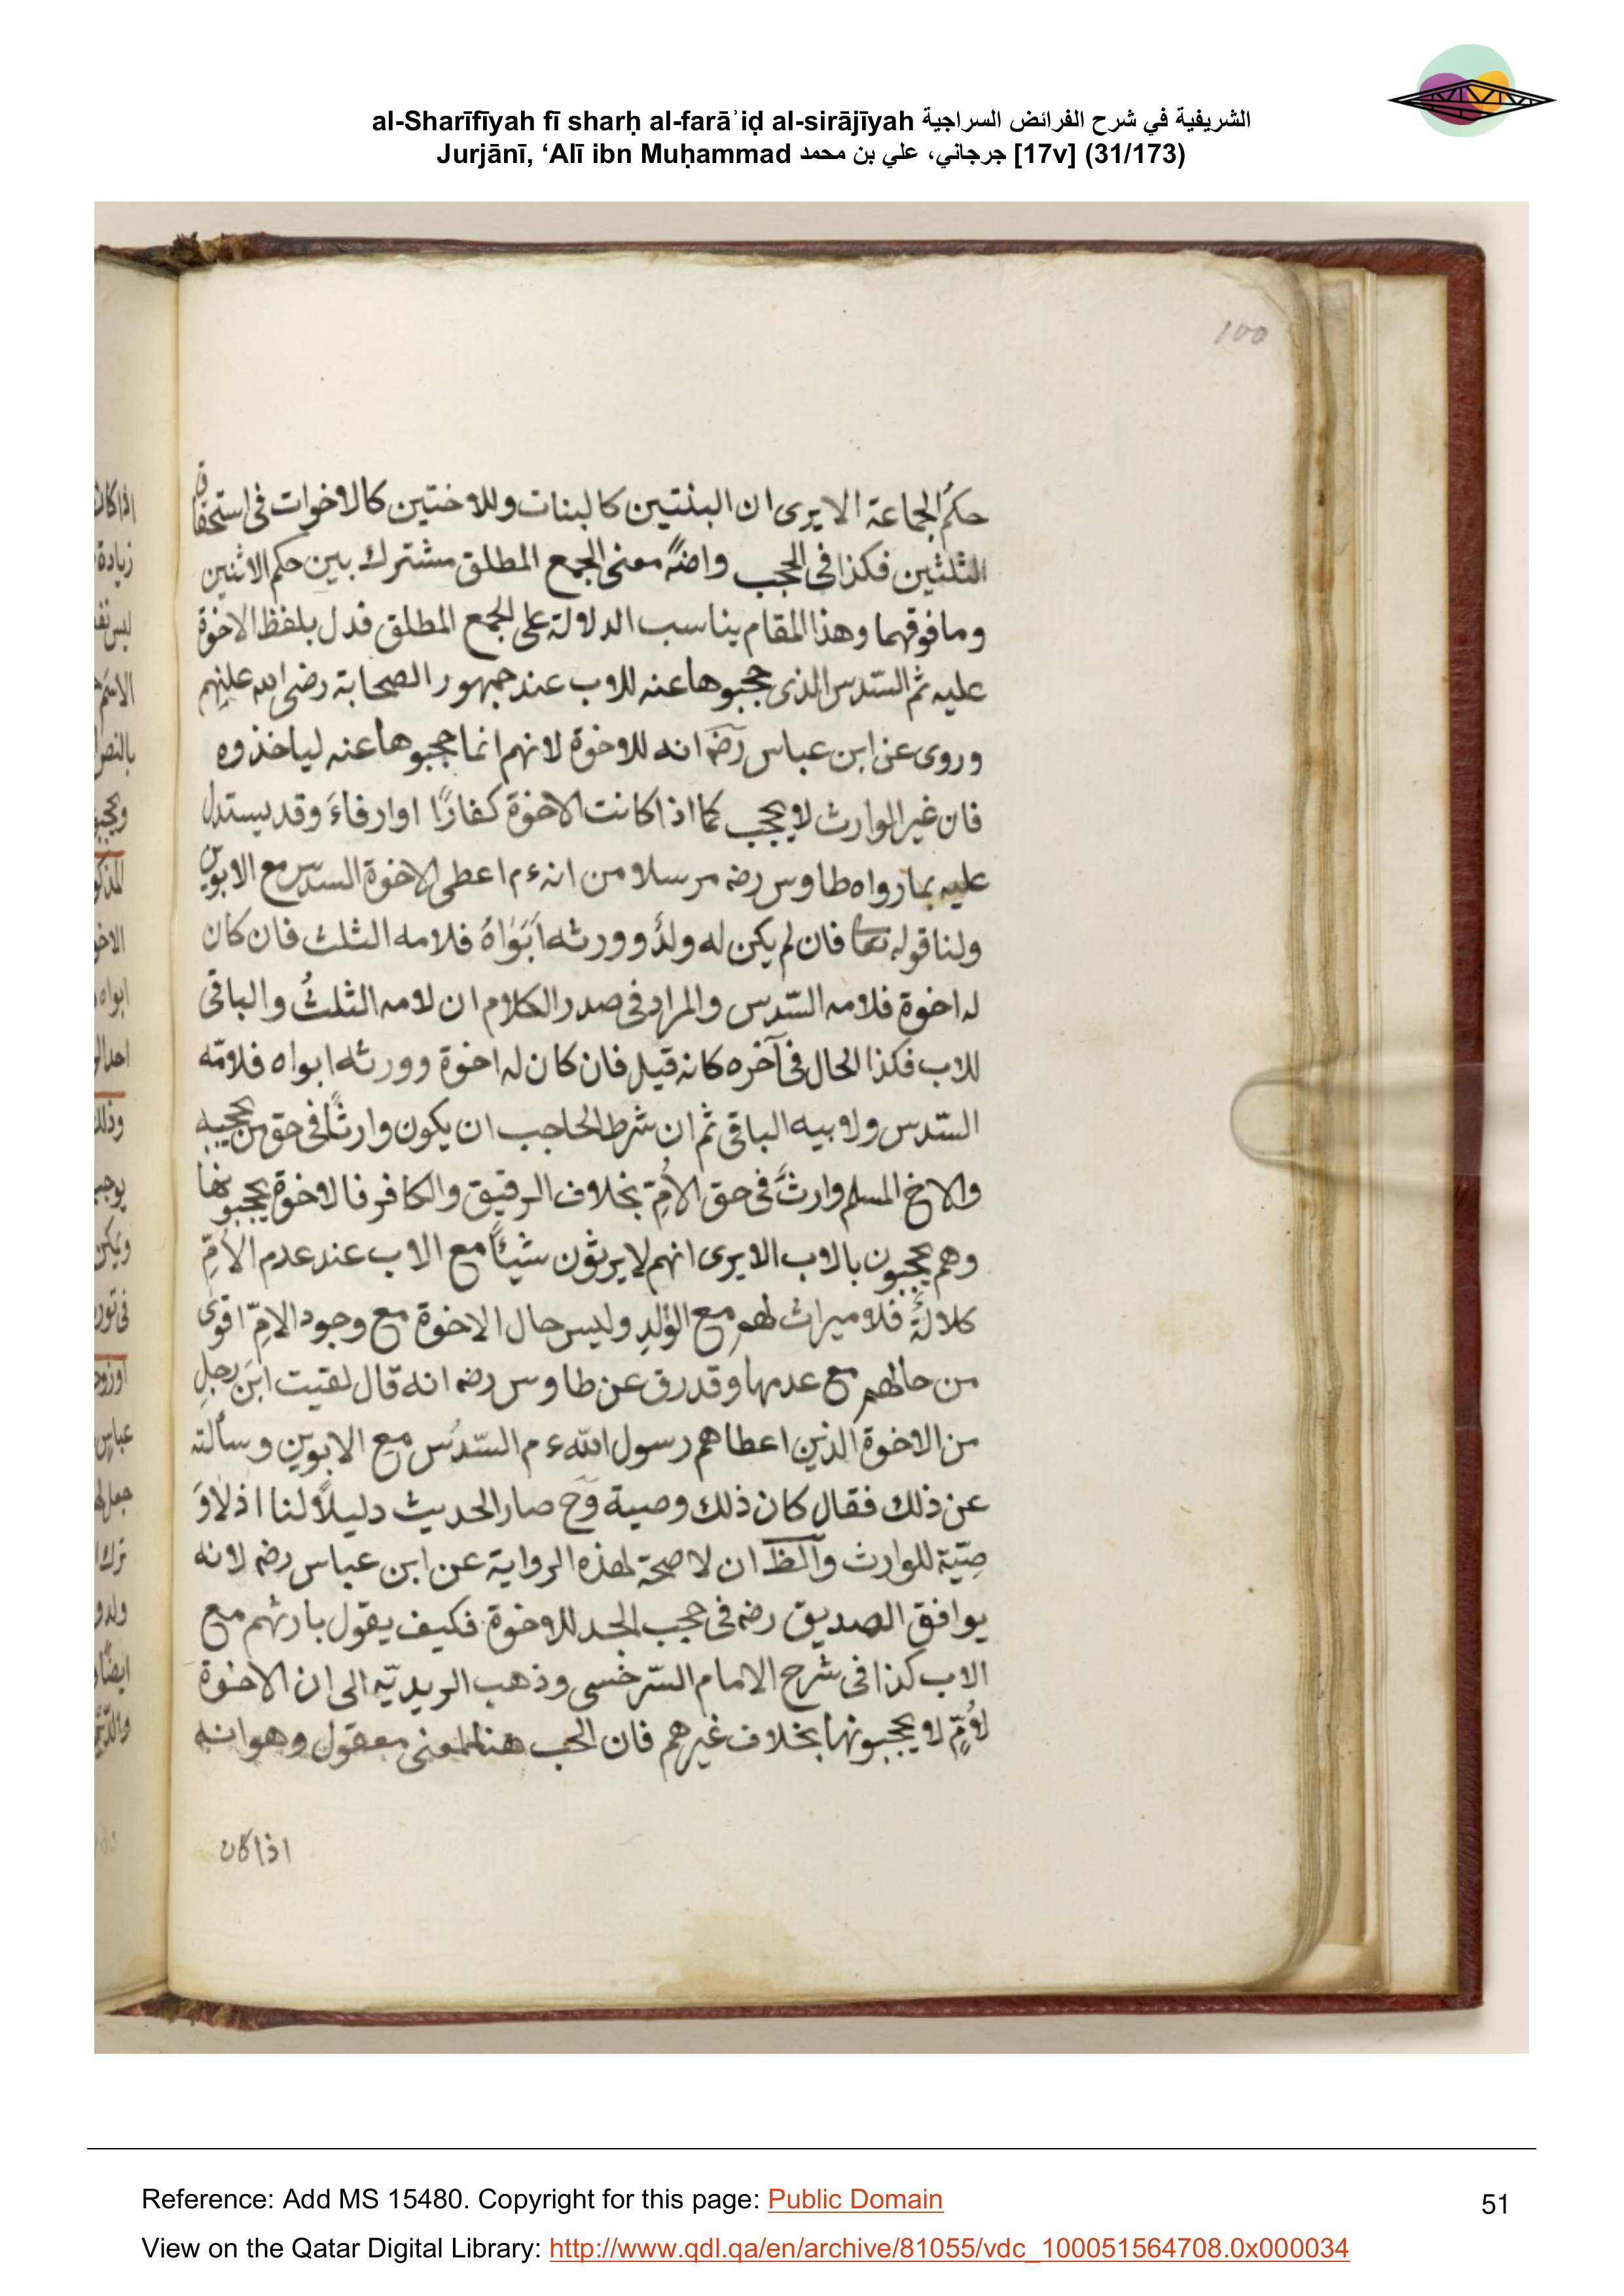 al-Sharīfīyah fī sharḥ al-farāʾiḍ al-sirājīyah الشريفية في شرح الفرائض السراجية
Jurjānī, ‘Alī ibn Muḥammad جرجاني، علي بن محمد [17v] (31/173)
100
حكمُ الجماعة الا يرى ان البنتين كالبنات وللاختين كالاخوات فى استحقاق
الثلثين فكذا فى الحجب وايضًا معنى الجمع المطلق مشترك بين حكم الاثنين
وما فوقهما وهذا المقام يناسب الدلالة على الجمع المطلق فدل بلفظ الاخوة
عليه ثم السّدس الذى حجبوها عنه للاب عند جمهور الصحابة رضى الله عنهم
وروى عن ابن عباس رضه انه للاخوة لانهم انما حجبوها عنه لياخذوه
فان غير الوارث لا يحجب كما اذا كانت الاخوة كفارًا او ارقاءَ وقد يستدل
عليه بما رواه طاوس رضه مرسلا من انه ءم اعطى الاخوة السدس مع الابوين
ولنا قوله تعا فان لم يكن له ولدٌ وورثه اَبَوَاهُ فلامه الثلث فان كان
له اخوة فلامه السّدس والمراد فى صدر الكلام ان لامه الثلثُ والباقى
للاب فكذا الحال فى آخره كانه قيل فان كان له اخوة وورثه ابواه فلامّه
السّدس ولابيه الباقى ثم ان شرط الحاجب ان يكون وارثًا فى حق من يحجبه
والاخ المسلم وارثٌ فى حق الاُمّ بخلاف الرقيق والكافر فالاخوة يحجبونها
وهم يحجبون بالاب الا يرى انهم لا يرثون شيئًا مع الاب عند عدم الاُمّ
كلالةً فلا ميراث لهم مع الوُلدِ وليس حال الاخوة مع وجود الامّ اقوى
من حالهم مع عدمها وقد رق عن طاوس رضه انه قال لقيت ابنَ رجلٍ
من الاخوة الذين اعطاهم رسول الله ءم السّدُس مع الابوين وسألته
عن ذلك فقال كان ذلك وصية وح صار الحديث دليلاً لنا اذ لا وَ
صِيّة للوارث والظ ان لا صحة لهذه الرواية عن ابن عباس رضه لانه
يوافق الصديق رضه فى حجب الجد للاخوة فكيف يقول بارثهم مع
الاب كذا فى شرح الامام السّرخسى وذهب الزيديّه الى ان الاخوة
لاُمٍّ لا يحجبونها بخلاف غيرهم فان الحجب هنا لمعنى معقول وهو انه
اذا كان
Reference: Add MS 15480. Copyright for this page: Public Domain
51
View on the Qatar Digital Library: http://www.qdl.qa/en/archive/81055/vdc_100051564708.0x000034